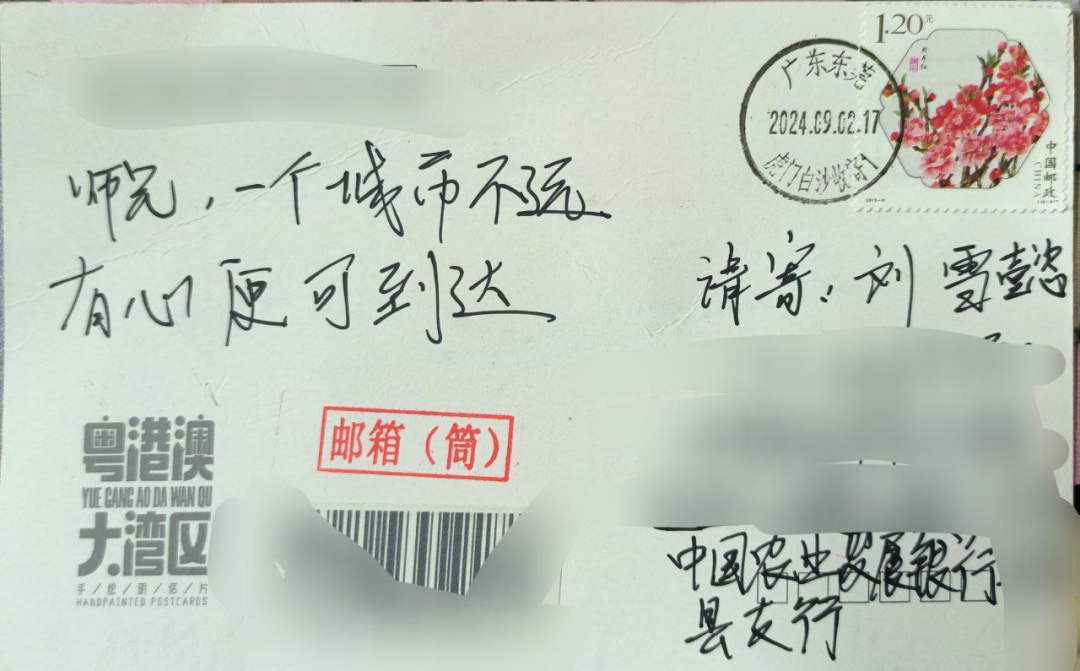 1.20元
广东东莞
2024.09.02.17
虎门白沙收寄1
中国邮政
CHINA
师兄，一个城市不远
有心便可到达
请寄：刘雪懿
邮箱（筒）
粤港澳
YUE GANG AO DA WAN QU
大湾区
手/绘/明/信/片
HANDPAINTED POSTCARDS
中国农业发展银行
县支行